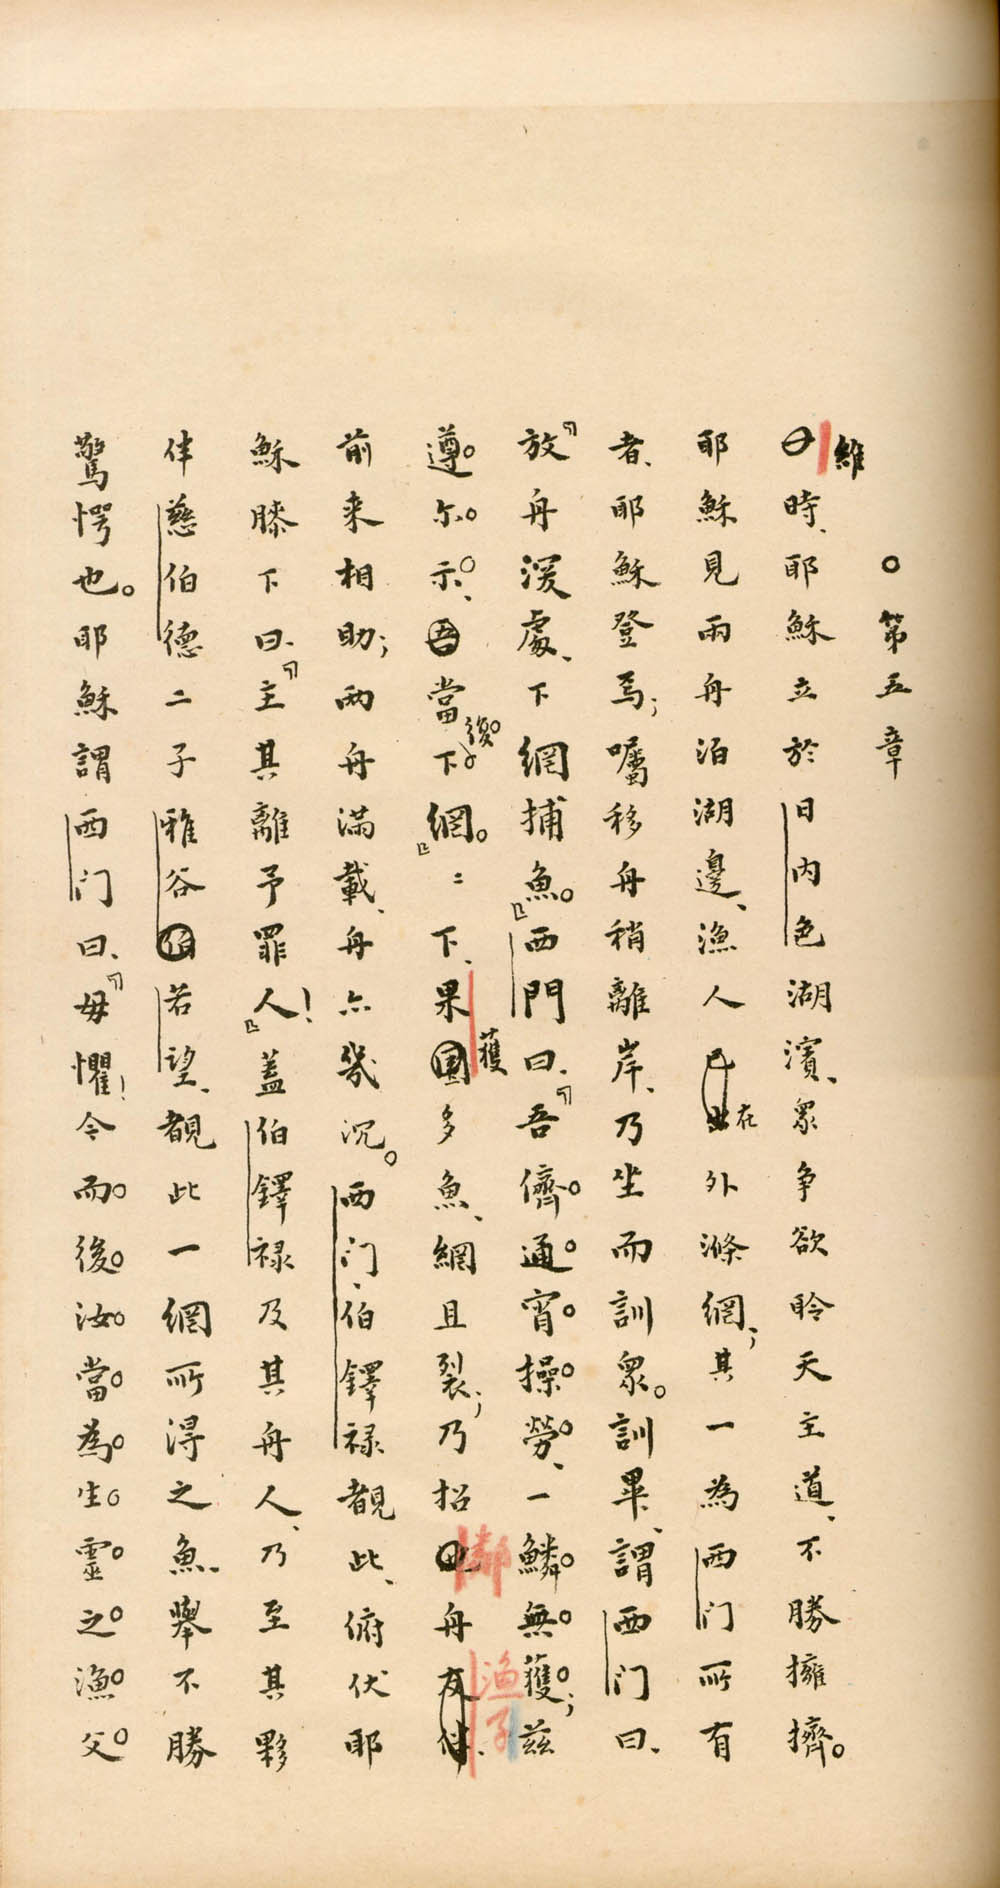 。第五章
維時、耶穌立於日内色湖濱、眾争欲聆天主道、不勝擁擠。
耶穌見兩舟泊湖邊、漁人在外滌網；其一為西门所有
者、耶穌登焉；囑移舟稍離岸、乃坐而訓眾。訓畢、謂西门曰、
『放舟深處、下網捕魚。』西門曰、『吾儕通宵操勞、一鱗無獲；茲
遵尓示、當復下網。』網下、果獲多魚、網且裂；乃招鄰舟漁子
前来相助；两舟满載、舟亦幾沉。西门、伯鐸禄覩此、俯伏耶
穌膝下曰、『主其離予罪人！』蓋伯鐸禄及其舟人、乃至其夥
伴慈伯德二子雅谷若望、覩此一網所得之魚、舉不勝
驚愕也。耶穌謂西门曰、『毋懼！今而後汝當為生靈之漁父